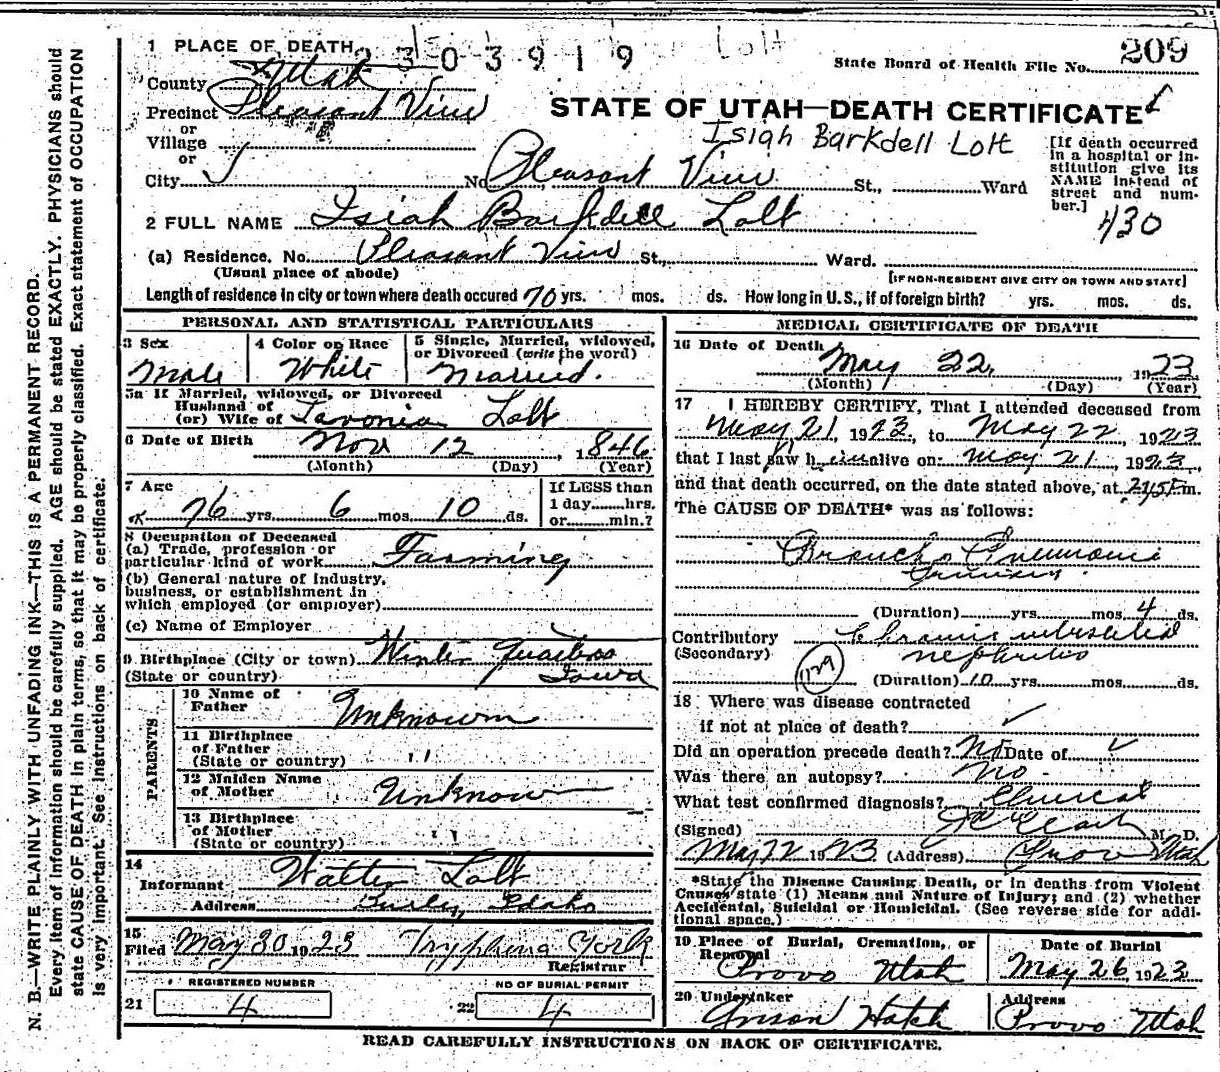 1 PLACE OF DEATH
2303919
Lott
State Board of Health File No. 209
County Utah
Precinct Pleasant View
or
Village
or
City
STATE OF UTAH—DEATH CERTIFICATE
Isiah Barkdell Lott
No. Pleasant View St., Ward
[If death occurred
in a hospital or in-
stitution give its
NAME instead of
street and num-
ber.]
430
2 FULL NAME Isiah Barkdell Lott
(a) Residence. No. Pleasant View St., Ward.
(Usual place of abode)
[IF NON-RESIDENT GIVE CITY OR TOWN AND STATE]
Length of residence in city or town where death occured 70 yrs. mos. ds. How long in U.S., if of foreign birth? yrs. mos. ds.
PERSONAL AND STATISTICAL PARTICULARS
3 Sex
Male
4 Color or Race
White
5 Single, Married, widowed,
or Divorced (write the word)
Married.
5a If Married, widowed, or Divorced
Husband of
(or) Wife of Lavonia Lott
6 Date of Birth Nov 12, 1846
(Month) (Day) (Year)
7 Age
76 yrs. 6 mos. 10 ds.
If LESS than
1 day hrs.
or min.?
8 Occupation of Deceased
(a) Trade, profession or
particular kind of work Farming
(b) General nature of industry,
business, or establishment in
which employed (or employer)
(c) Name of Employer
9 Birthplace (City or town) Winter Quarters
(State or country) Iowa
PARENTS
10 Name of
Father Unknown
11 Birthplace
of Father
(State or country) " "
12 Maiden Name
of Mother Unknown
13 Birthplace
of Mother
(State or country) " "
14
Informant Walter Lott
Address Burley, Idaho
15
Filed May 30 1923 Tryphena York
Registrar
REGISTERED NUMBER
21 4
NO OF BURIAL PERMIT
22 4
MEDICAL CERTIFICATE OF DEATH
16 Date of Death May 22, 1923
(Month) (Day) (Year)
17 I HEREBY CERTIFY, That I attended deceased from
May 21, 1923, to May 22, 1923
that I last saw him alive on May 21, 1923,
and that death occurred, on the date stated above, at 2:15 P.m.
The CAUSE OF DEATH* was as follows:
Broncho Pneumonia
Primary
(Duration) yrs. mos. 4 ds.
Contributory Chronic interstitial
(Secondary) nephritis
129
(Duration) 10 yrs. mos. ds.
18 Where was disease contracted
if not at place of death?
Did an operation precede death? No Date of
Was there an autopsy? No
What test confirmed diagnosis? Clinical
(Signed) M. D.
May 22 1923 (Address) Provo Utah
*State the Disease Causing Death, or in deaths from Violent
Causes state (1) Means and Nature of Injury; and (2) whether
Accidental, Suicidal or Homicidal. (See reverse side for addi-
tional space.)
19 Place of Burial, Cremation, or
Removal
Provo Utah
Date of Burial
May 26, 1923
20 Undertaker
Hatch
Address
Provo Utah
READ CAREFULLY INSTRUCTIONS ON BACK OF CERTIFICATE.
N. B.—WRITE PLAINLY WITH UNFADING INK—THIS IS A PERMANENT RECORD.
Every item of information should be carefully supplied. AGE should be stated EXACTLY. PHYSICIANS should
state CAUSE OF DEATH in plain terms, so that it may be properly classified. Exact statement of OCCUPATION
is very important. See instructions on back of certificate.